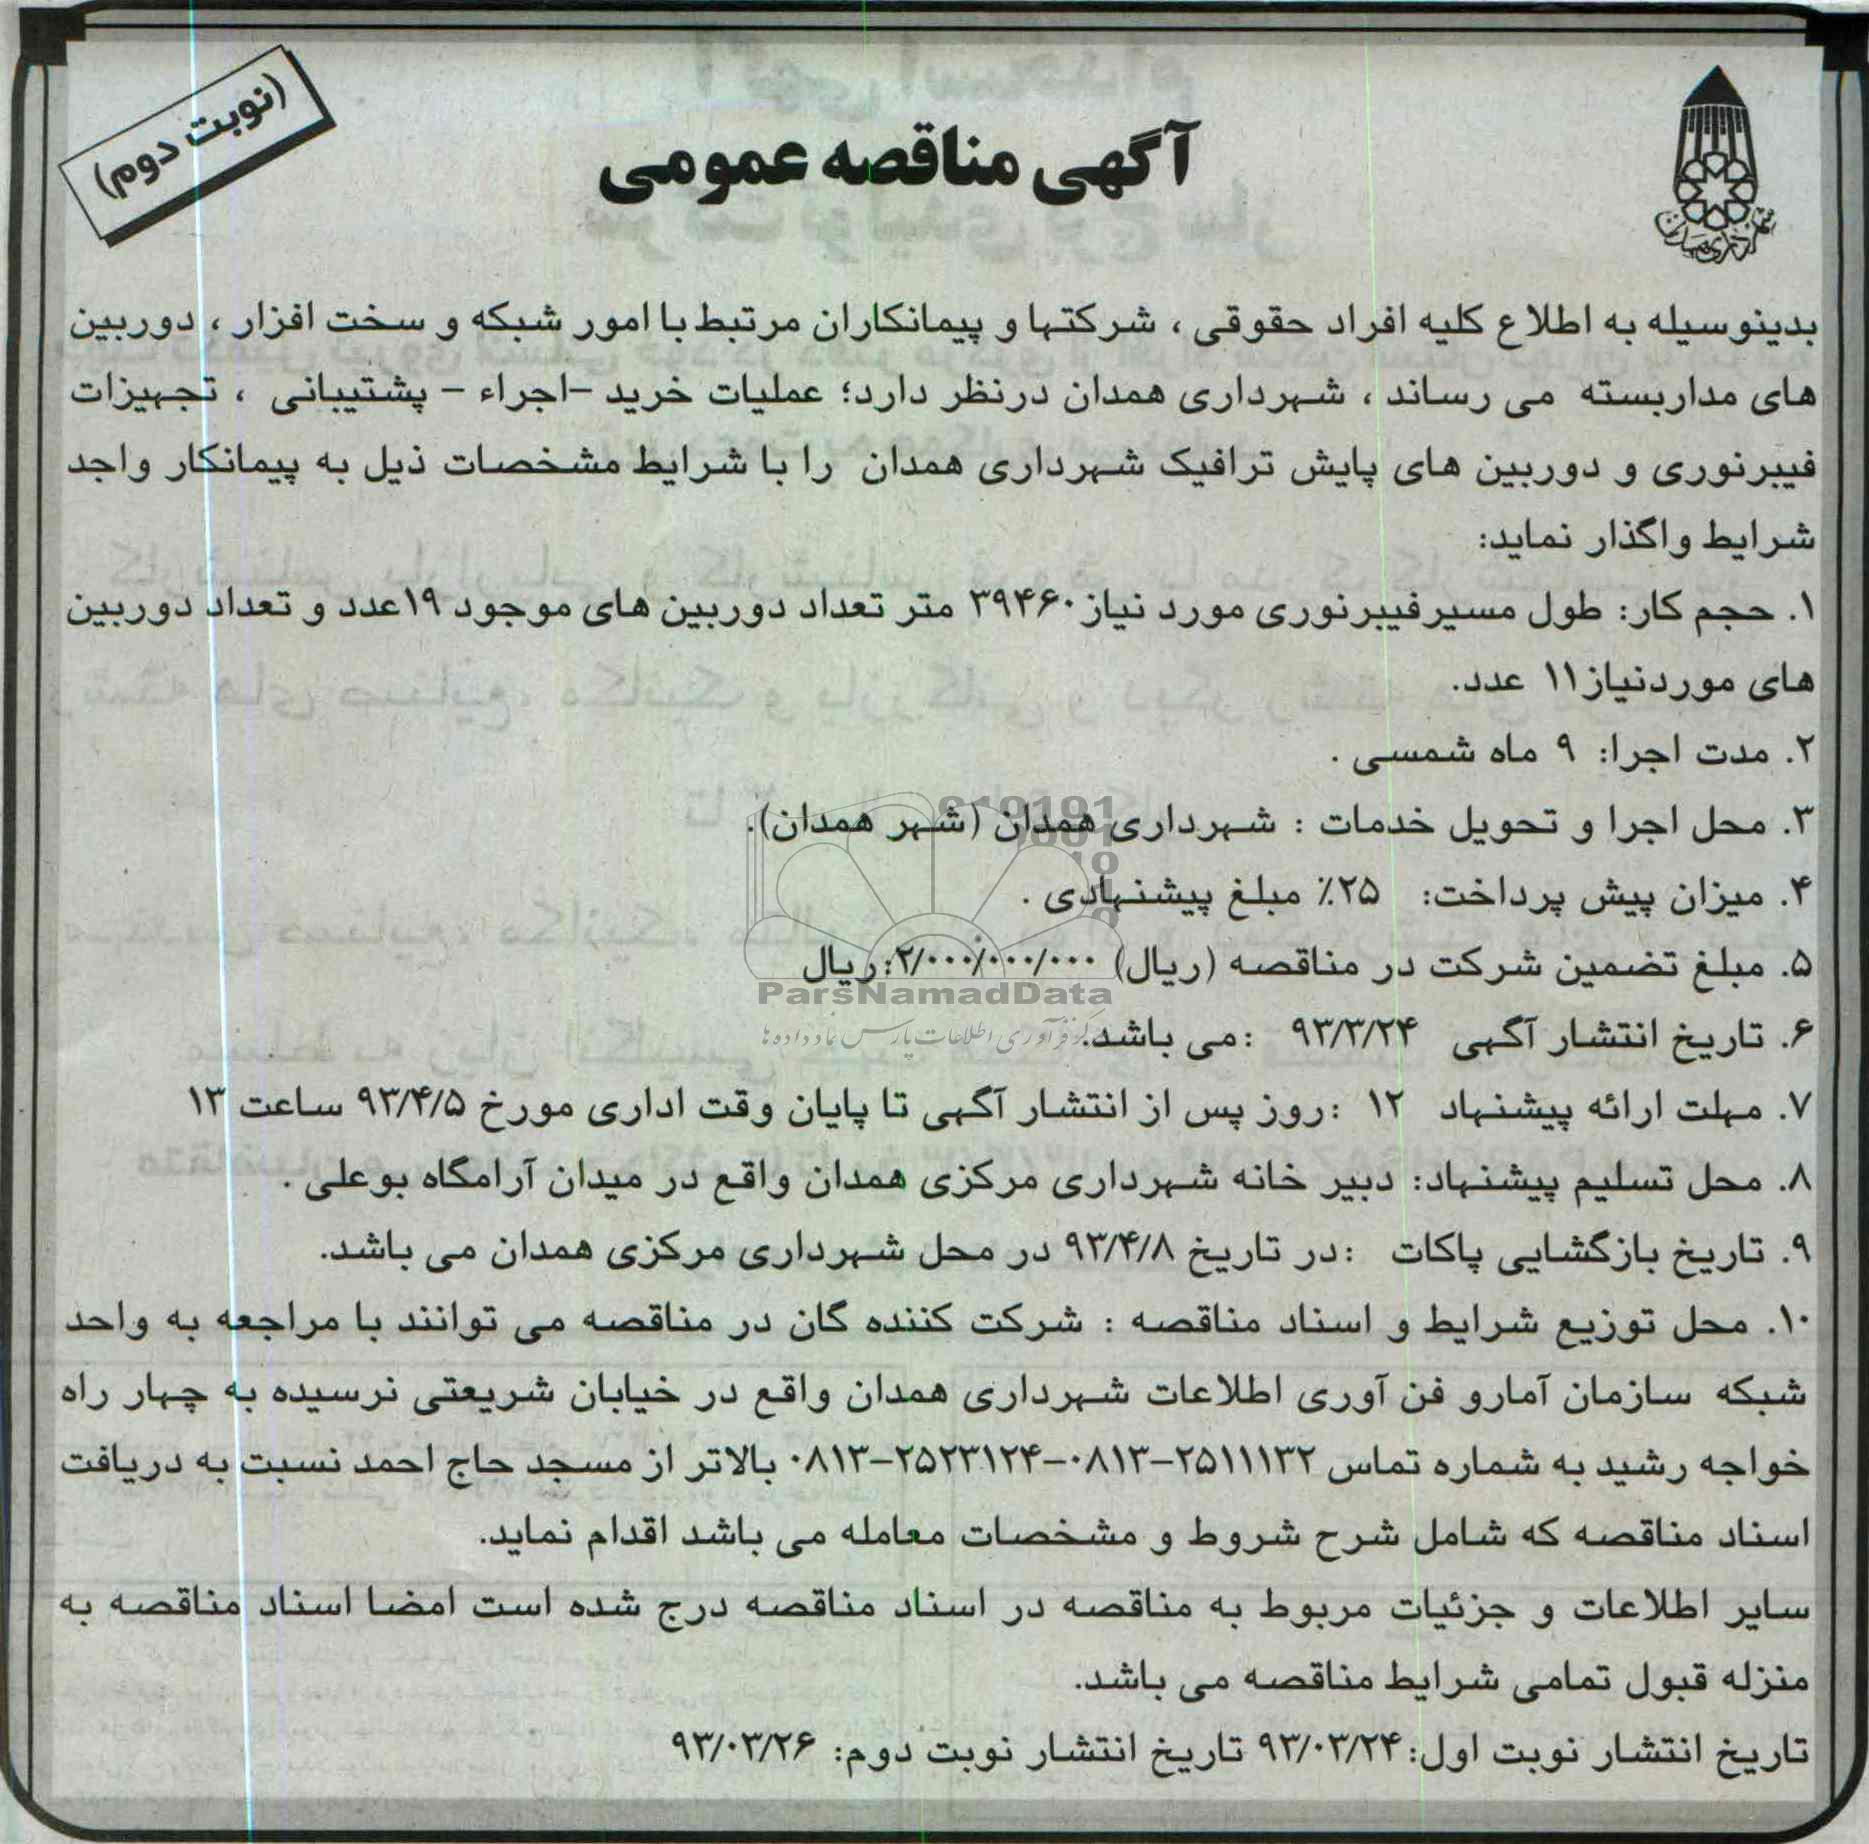 (نوبت دوم)
آگهی مناقصه عمومی
بدینوسیله به اطلاع کلیه افراد حقوقی ، شرکتها و پیمانکاران مرتبط با امور شبکه و سخت افزار ، دوربین
های مداربسته می رساند ، شهرداری همدان درنظر دارد؛ عملیات خرید -اجراء - پشتیبانی ، تجهیزات
فیبرنوری و دوربین های پایش ترافیک شهرداری همدان را با شرایط مشخصات ذیل به پیمانکار واجد
شرایط واگذار نماید:
۱. حجم کار: طول مسیرفیبرنوری مورد نیاز۳۹۴۶۰ متر تعداد دوربین های موجود ۱۹عدد و تعداد دوربین
های موردنیاز۱۱ عدد.
۲. مدت اجرا: ۹ ماه شمسی .
۳. محل اجرا و تحویل خدمات : شهرداری همدان (شهر همدان).
۴. میزان پیش پرداخت: ۲۵٪ مبلغ پیشنهادی .
۵. مبلغ تضمین شرکت در مناقصه (ریال) ۲/۰۰۰/۰۰۰/۰۰۰:ریال
ParsNamadData
مرکز فرآوری اطلاعات پارس نماد داده ها
۶. تاریخ انتشار آگهی ۹۳/۳/۲۴ :می باشد.
۷. مهلت ارائه پیشنهاد ۱۲ :روز پس از انتشار آگهی تا پایان وقت اداری مورخ ۹۳/۴/۵ ساعت ۱۳
۸. محل تسلیم پیشنهاد: دبیر خانه شهرداری مرکزی همدان واقع در میدان آرامگاه بوعلی .
۹. تاریخ بازگشایی پاکات :در تاریخ ۹۳/۴/۸ در محل شهرداری مرکزی همدان می باشد.
۱۰. محل توزیع شرایط و اسناد مناقصه : شرکت کننده گان در مناقصه می توانند با مراجعه به واحد
شبکه سازمان آمارو فن آوری اطلاعات شهرداری همدان واقع در خیابان شریعتی نرسیده به چهار راه
خواجه رشید به شماره تماس ۲۵۱۱۱۳۲-۰۸۱۳-۲۵۲۳۱۲۴-۰۸۱۳ بالاتر از مسجد حاج احمد نسبت به دریافت
اسناد مناقصه که شامل شرح شروط و مشخصات معامله می باشد اقدام نماید.
سایر اطلاعات و جزئیات مربوط به مناقصه در اسناد مناقصه درج شده است امضا اسناد مناقصه به
منزله قبول تمامی شرایط مناقصه می باشد.
تاریخ انتشار نوبت اول: ۹۳/۰۳/۲۴ تاریخ انتشار نوبت دوم: ۹۳/۰۳/۲۶